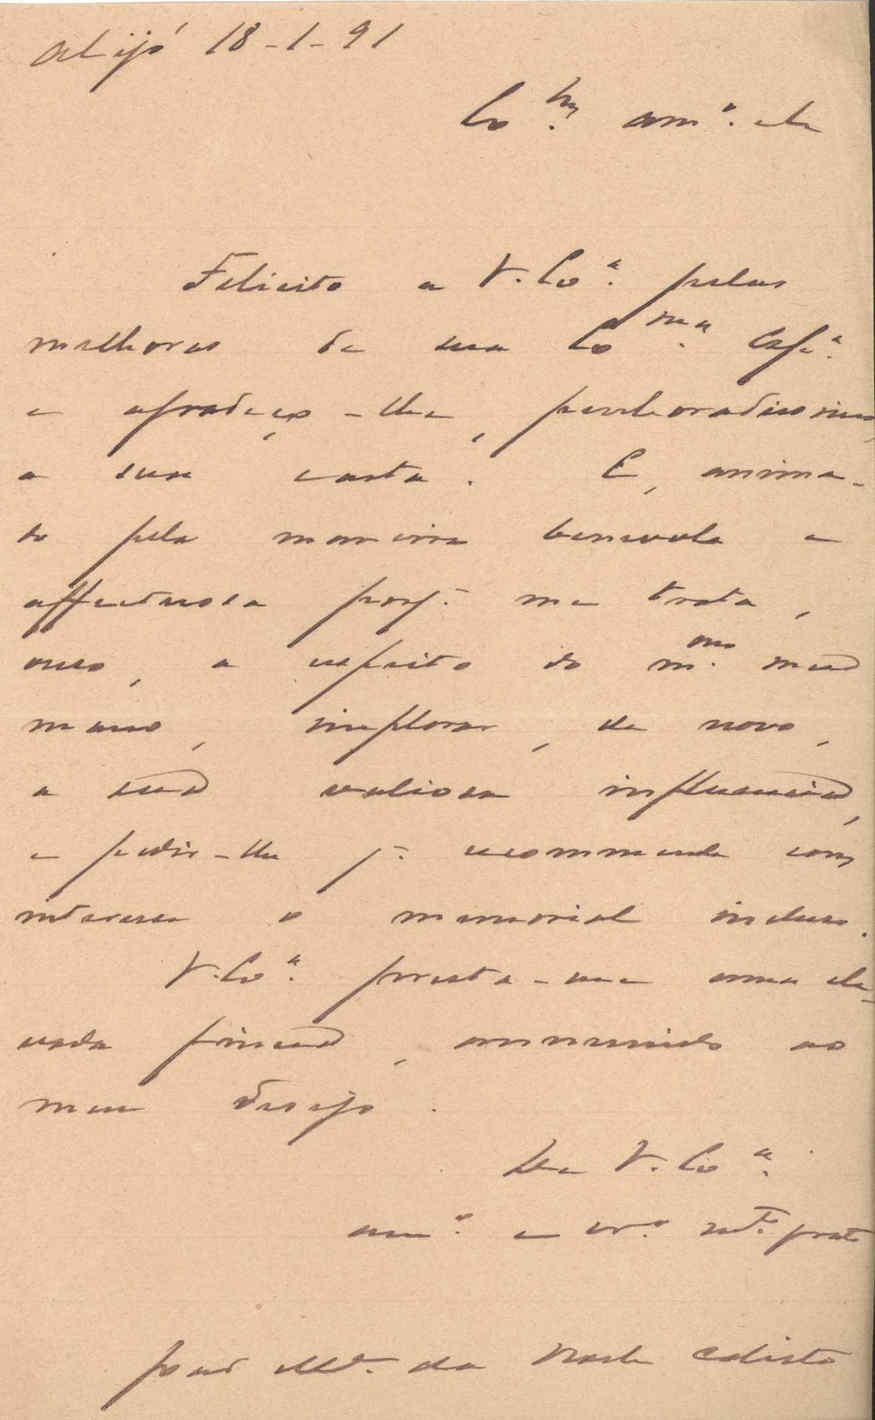 Alijó 18-1-91
Ex.mo am.o e
Felicito a V. Ex.a pelas
melhoras de sua Ex.ma Esp.a
e agradeço-lhe, penhoradissimo,
a sua carta. E, anima-
do pela maneira benevola e
affectuosa porq. me trata,
ouso, a respeito do m.mo meu
mano, implorar, de novo,
a sua valiosa influencia,
e pedir-lhe q. recommende com
interesse o memorial incluso.
V. Ex.a presta-me uma ele-
vada fineza, annuindo ao
meu desejo.
De V. Ex.a
am.o e cr.o m.to grato
José M.a da Calisto